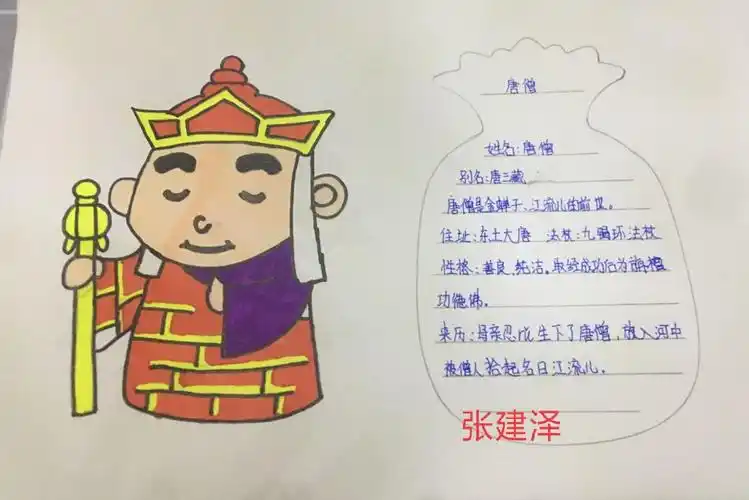 唐僧
姓名:唐僧
别名:唐三藏
唐僧是金蝉子、江流儿的前世。
住址:东土大唐 法杖:九锡环法杖
性格:善良,纯洁。取经成功后为旃檀
功德佛。
来历:母亲忍 生下了唐僧,放入河中
被僧人拾起名曰江流儿。
张建泽